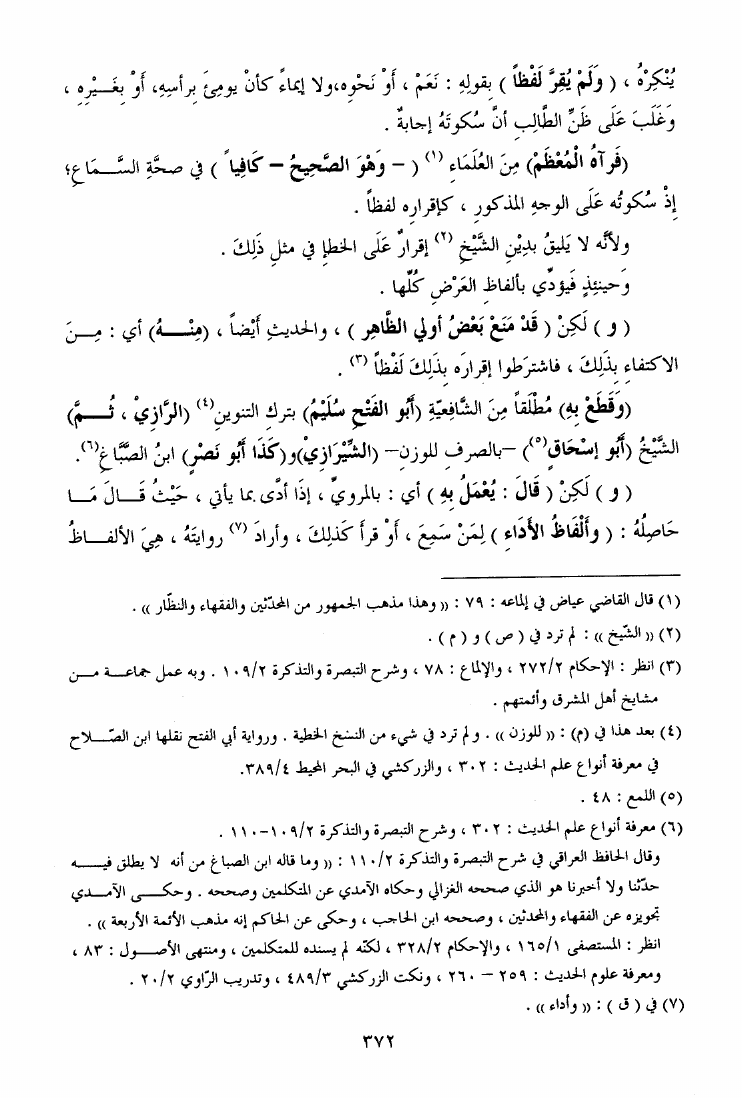 يُنْكِرْهُ ، ( وَلَمْ يُقِرَّ لَفْظاً ) بقولِهِ : نَعَمْ ، أَوْ نَحْوِه،ولا إيماءً كأنْ يومِئَ بِرأسِهِ، أَوْ بِغَيْرِهِ ،
وَغَلَبَ عَلَى ظَنِّ الطَّالِبِ أنَّ سُكوتَهُ إجابةٌ .
(فَرآهُ الْمُعْظَمْ) مِنَ العُلَمَاءِ (١) ( – وَهْوَ الصَّحِيحُ – كَافِياً ) في صحَّةِ السَّمَاعِ؛
إِذْ سُكُوتُه عَلَى الوجهِ المذكورِ ، كإقرارِه لفظاً .
ولأنَّه لا يَليقُ بدِيْنِ الشَّيْخِ (٢) إقرارٌ عَلَى الخطإِ في مثلِ ذَلِكَ .
وَحينئِذٍ فَيؤدِّي بألفاظِ العَرْضِ كُلِّها .
( و ) لَكِنْ ( قَدْ مَنَعَ بَعْضُ أولي الظَّاهِرِ ) ، والحديثِ أَيْضاً ، (مِنْهُ) أي : مِنَ
الاكتفاءِ بذَلِكَ ، فاشترَطوا إقرارَه بذَلِكَ لَفْظاً (٣) .
(وَقَطَعْ بِهِ) مُطْلَقاً مِنَ الشَّافعيّةِ (أَبُو الفَتْحِ سُلَيْمُ) بتركِ التنوينِ(٤) (الرَّازِيْ ، ثُمَّ)
الشَّيْخُ (أَبُو إسْحَاقٍ(٥)) –بالصرفِ للوزنِ– (الشِّيْرَازِيْ)و(كَذَا أَبُو نَصْرٍ) ابنُ الصَّبَّاغِ(٦).
( و ) لَكِنْ ( قَالَ : يُعْمَلُ بِهِ ) أي : بالمرويِّ ، إِذَا أدَّى بما يأتي ، حَيْثُ قَالَ مَا
حَاصِلُهُ : ( وأَلْفَاظُ الأَدَاءِ ) لِمَنْ سَمِعَ ، أَوْ قرأَ كَذلِكَ ، وأرادَ (٧) روايتَهُ ، هِيَ الألفاظُ
(١) قال القاضي عياض في إلماعه : ٧٩ : (( وهذا مذهب الجمهور من المحدّثين والفقهاء والنظّار )) .
(٢) (( الشّيخ )) : لم ترد في ( ص ) و ( م ) .
(٣) انظر : الإحكام ٢٧٢/٢ ، والإلماع : ٧٨ ، وشرح التبصرة والتذكرة ١٠٩/٢ . وبه عمل جماعة من
مشايخ أهل المشرق وأئمتهم .
(٤) بعد هذا في (م) : (( للوزن )) . ولم ترد في شيء من النسخ الخطية . ورواية أبي الفتح نقلها ابن الصّلاح
في معرفة أنواع علم الحديث : ٣٠٢ ، والزركشي في البحر المحيط ٣٨٩/٤.
(٥) اللمع : ٤٨ .
(٦) معرفة أنواع علم الحديث : ٣٠٢ ، وشرح التبصرة والتذكرة ١٠٩/٢-١١٠ .
وقال الحافظ العراقي في شرح التبصرة والتذكرة ١١٠/٢ : (( وما قاله ابن الصباغ من أنه لا يطلق فيه
حدّثنا ولا أخبرنا هو الذي صححه الغزالي وحكاه الآمدي عن المتكلمين وصححه . وحكى الآمدي
تجويزه عن الفقهاء والمحدثين ، وصححه ابن الحاجب ، وحكى عن الحاكم إنه مذهب الأئمة الأربعة )) .
انظر : المستصفى ١٦٥/١ ، والإحكام ٣٢٨/٢ ، لكنّه لم يسنده للمتكلمين ، ومنتهى الأصول : ٨٣ ،
ومعرفة علوم الحديث : ٢٥٩ – ٢٦٠ ، ونكت الزركشي ٤٨٩/٣ ، وتدريب الرّاوي ٢٠/٢ .
(٧) في ( ق ) : (( وأداء )) .
٣٧٢